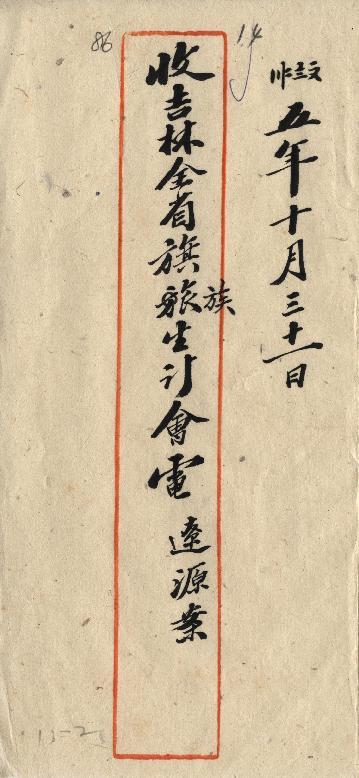 五年十月三十一日
收吉林全省旗旅生計會電 遼源案
族
86
14
15-2